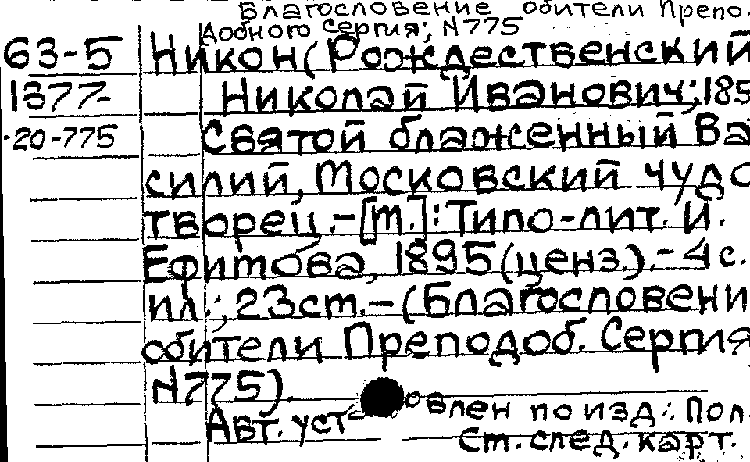 Благословение обители Препо-
добного Сергия; N775
63-5 Никон (Рождественский
1377- Николай Иванович; 185
20-775 Святой блаженный Ва
силий, Московский чудо
творец.-[М.]: Типо-лит. И.
Ефимова, 1895 (ценз.).- 4 с.
ил.; 23 см.-(Благословени
обители Преподоб. Сергия
N775).
Авт. уст овлен по изд.: Пол
См. след. карт.